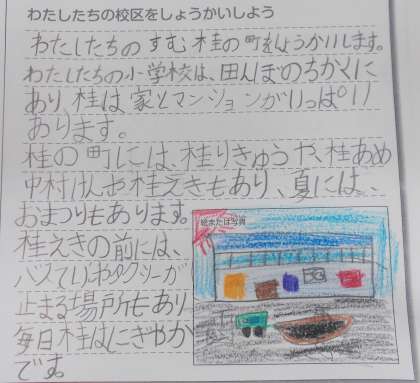 わたしたちの校区をしょうかいしよう
わたしたちのすむ桂の町をしょうかいします。
わたしたちの小学校は、田んぼのちかくに
あり、桂は家とマンションがいっぱい
あります。
桂の町には、桂りきゅうや、桂あめ
中村けんや桂えきもあり、夏には、
おまつりもあります。
桂えきの前には、
バスていやタクシーが
止まる場所もあり
毎日桂はにぎやか
です。
絵または写真